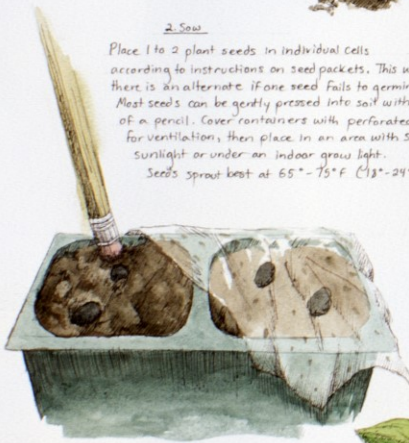 2. Sow
Place 1 to 2 plant seeds in individual cells
according to instructions on seed packets. This w
there is an alternate if one seed fails to germin
Most seeds can be gently pressed into soil with
of a pencil. Cover containers with perforated
for ventilation, then place in an area with s
sunlight or under an indoor grow light.
Seeds sprout best at 65°-75°F (18°-24°